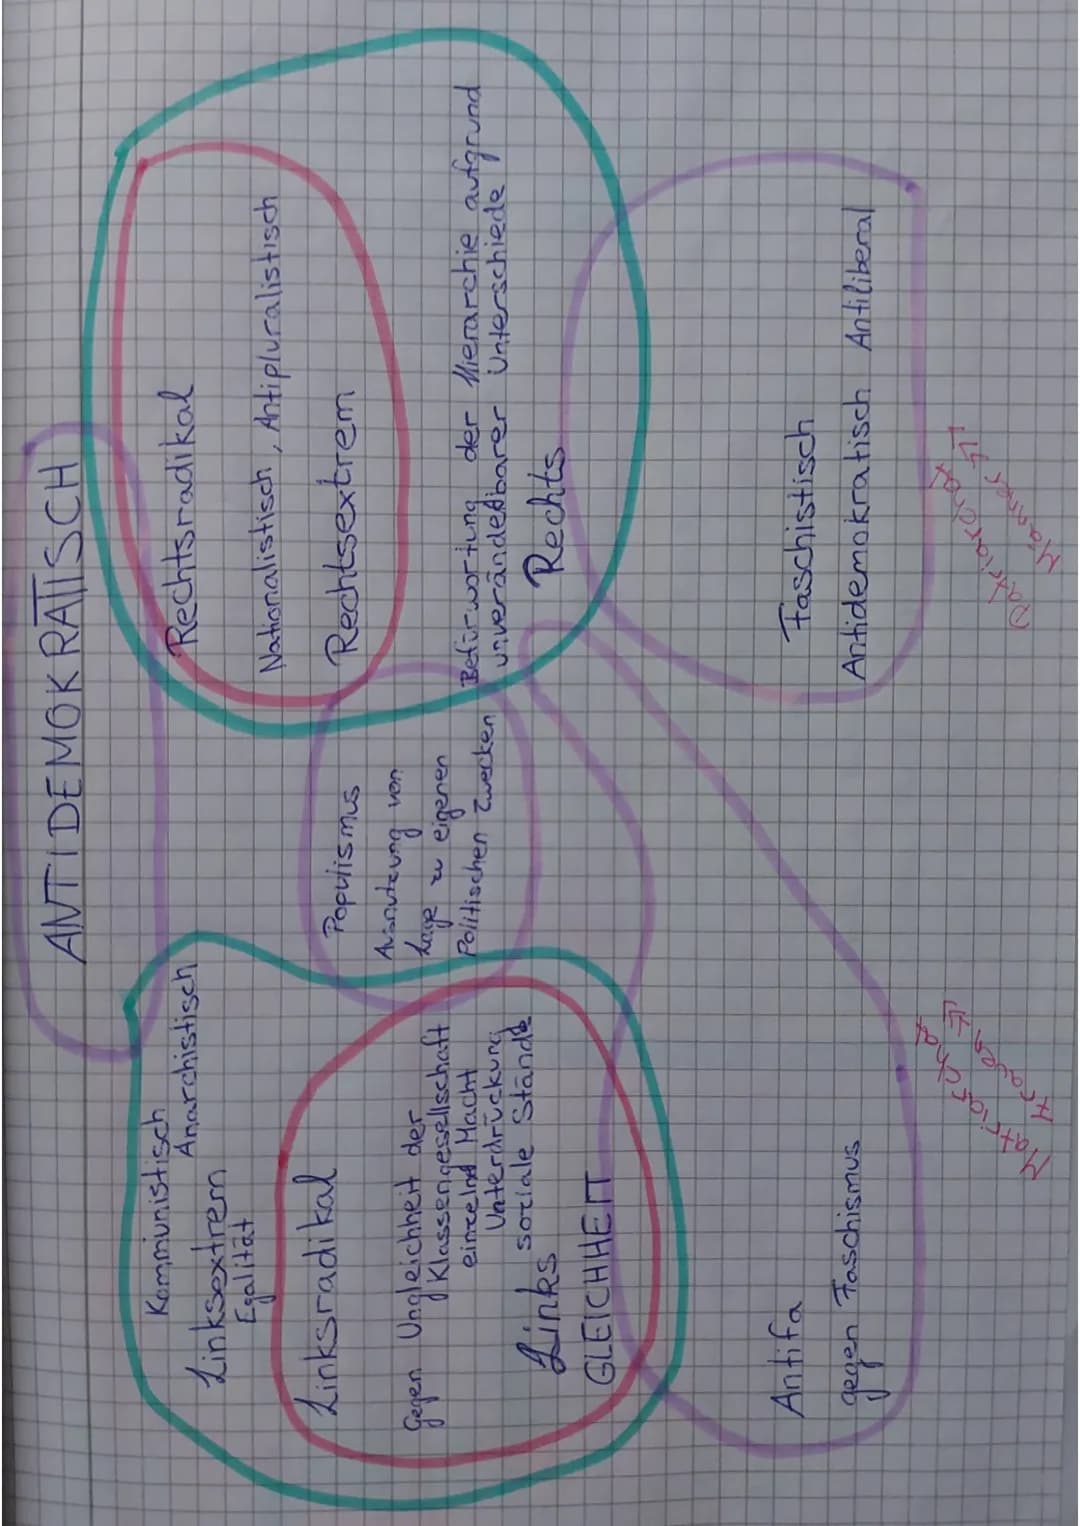 ANTIDEMOKRATISCH
Kommunistisch
Anarchistisch
Linksextrem
Egalität
Linksradikal
Gegen Ungleichheit der
Klassengesellschaft
einzelnd Macht
Unterdrückung
soziale Stände
Links
GLEICHHEIT
Populismus
Ausnutzung von
Lage zu eigenen
Politischen Zwecken
Rechtsradikal
Nationalistisch, Antipluralistisch
Rechtsextrem
Befürwortung der Hierarchie aufgrund
unveränderbarer Unterschiede
Rechts
Antifa
gegen Faschismus
Faschistisch
Antidemokratisch Antiliberal
Matriarchat
Frauen ⇑
Patriarchat
Männer ⇑